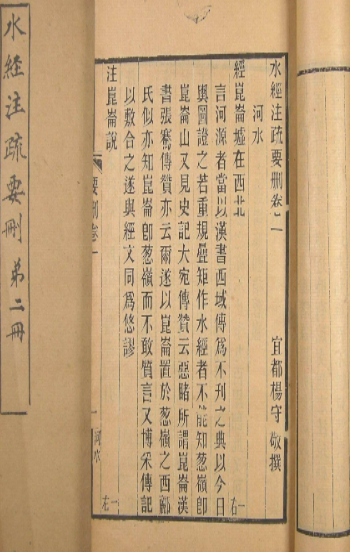 水經注疏要刪 第二冊
水經注疏要刪卷二
宜都楊守敬撰
河水
經崑崙墟在西北
言河源者當以漢書西域傳爲不刊之典以今日
輿圖證之若重規疊矩作水經者不能知葱嶺卽
崑崙山又見史記大宛傳贊云惡睹所謂崑崙漢
書張騫傳贊亦云爾遂以崑崙置於葱嶺之西酈
氏似亦知崑崙卽葱嶺而不敢質言又博采傳記
以敷合之遂與經文同爲悠謬
注崑崙說
要刪卷二
河水
一右
一左